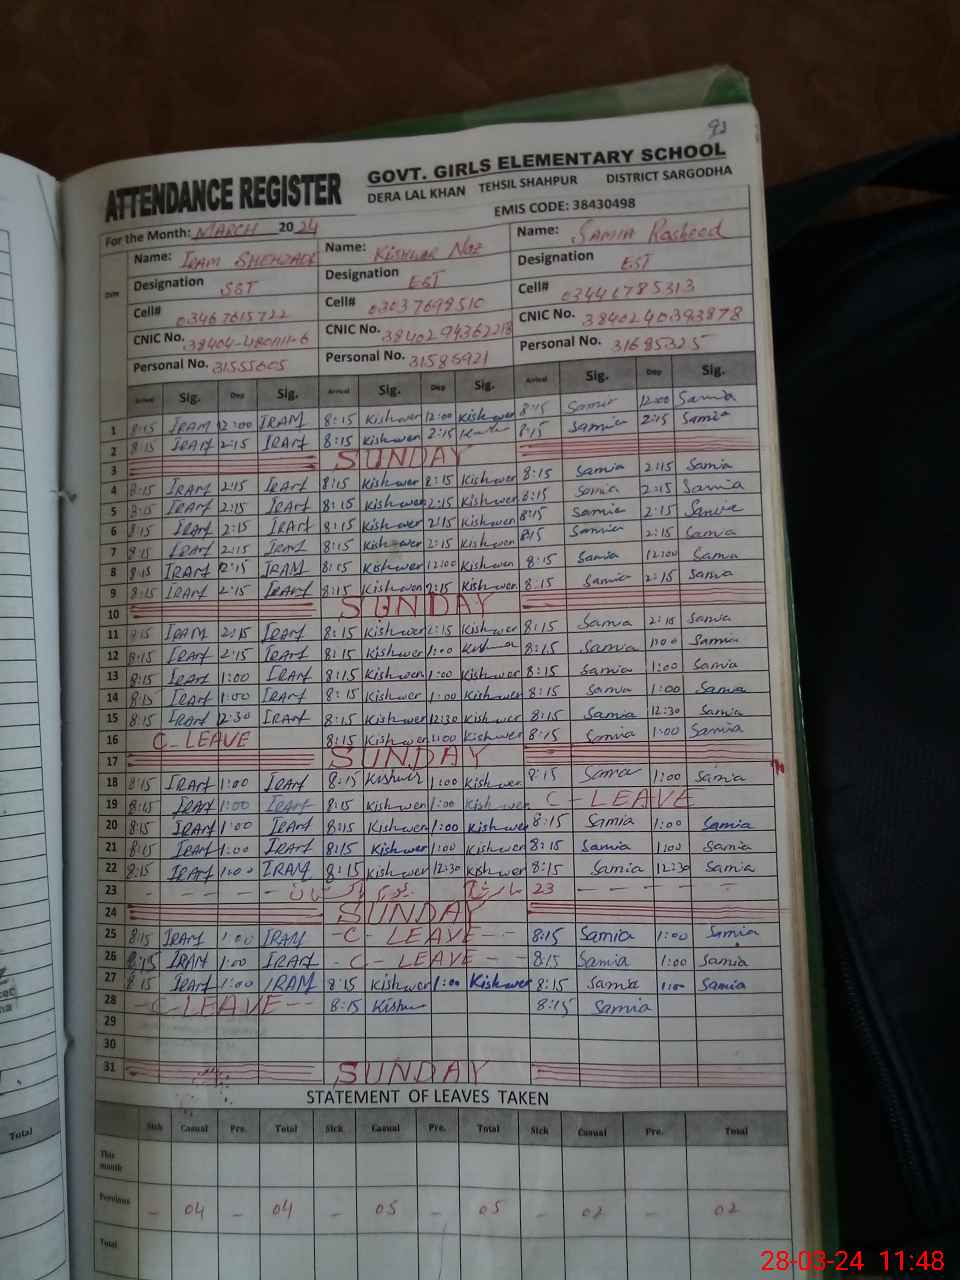 92
ATTENDANCE REGISTER
GOVT. GIRLS ELEMENTARY SCHOOL
DERA LAL KHAN TEHSIL SHAHPUR DISTRICT SARGODHA
EMIS CODE: 38430498
For the Month: MARCH 2024
Name: IRAM SHEHZADI Name: Kishwar Naz Name: Samia Rasheed
Designation SST Designation EST Designation EST
Cell# 03467615722 Cell# 03037698510 Cell# 03446785313
CNIC No. CNIC No. 3840294362218 CNIC No. 3840240393878
Personal No. 31555605 Personal No. 31586921 Personal No. 31685325
Date Arrival Sig. Dep Sig. Arrival Sig. Dep Sig. Arrival Sig. Dep Sig.
1 8:15 IRAM 12:00 IRAM 8:15 Kishwer 12:00 Kishwer 8:15 Samia 12:00 Samia
2 8:15 IRAM 2:15 IRAM 8:15 Kishwer 2:15 8:15 Samia 2:15 Samia
3 SUNDAY
4 8:15 IRAM 2:15 IRAM 8:15 Kishwer 8:15 Kishwer 8:15 Samia 2:15 Samia
5 8:15 IRAM 2:15 IRAM 8:15 Kishwer 2:15 Kishwer 8:15 Samia 2:15 Samia
6 8:15 IRAM 2:15 IRAM 8:15 Kishwer 2:15 Kishwer 8:15 Samia 2:15 Samia
7 8:15 IRAM 2:15 IRAM 8:15 Kishwer 2:15 Kishwer 8:15 Samia 2:15 Samia
8 8:15 IRAM 2:15 IRAM 8:15 Kishwer 12:00 Kishwer 8:15 Samia 12:00 Samia
9 8:15 IRAM 2:15 IRAM 8:15 Kishwer 2:15 Kishwer 8:15 Samia 2:15 Samia
10 SUNDAY
11 8:15 IRAM 2:15 IRAM 8:15 Kishwer 2:15 Kishwer 8:15 Samia 2:15 Samia
12 8:15 IRAM 2:15 IRAM 8:15 Kishwer 1:00 Kishwer 8:15 Samia 1:00 Samia
13 8:15 IRAM 1:00 IRAM 8:15 Kishwer 1:00 Kishwer 8:15 Samia 1:00 Samia
14 8:15 IRAM 1:00 IRAM 8:15 Kishwer 1:00 Kishwer 8:15 Samia 1:00 Samia
15 8:15 IRAM 12:30 IRAM 8:15 Kishwer 12:30 Kishwer 8:15 Samia 12:30 Samia
16 C-LEAVE 8:15 Kishwer 1:00 Kishwer 8:15 Samia 1:00 Samia
17 SUNDAY
18 8:15 IRAM 1:00 IRAM 8:15 Kishwer 1:00 Kishwer 8:15 Samia 1:00 Samia
19 8:15 IRAM 1:00 IRAM 8:15 Kishwer 1:00 Kishwer C-LEAVE
20 8:15 IRAM 1:00 IRAM 8:15 Kishwer 1:00 Kishwer 8:15 Samia 1:00 Samia
21 8:15 IRAM 1:00 IRAM 8:15 Kishwer 1:00 Kishwer 8:15 Samia 1:00 Samia
22 8:15 IRAM 1:00 IRAM 8:15 Kishwer 12:30 Kishwer 8:15 Samia 12:30 Samia
23 - - - - 23 مارچ یوم پاکستان - - - -
24 SUNDAY
25 8:15 IRAM 1:00 IRAM -C- LEAVE-- 8:15 Samia 1:00 Samia
26 8:15 IRAM 1:00 IRAM -C- LEAVE-- 8:15 Samia 1:00 Samia
27 8:15 IRAM 1:00 IRAM 8:15 Kishwer 1:00 Kishwer 8:15 Samia 1:00 Samia
28 -C-LEAVE-- 8:15 Kishwer 8:15 Samia
29
30
31 SUNDAY
STATEMENT OF LEAVES TAKEN
Sick Casual Pre. Total Sick Casual Pre. Total Sick Casual Pre. Total
This month
Previous - 04 - 04 - 05 - 05 - 02 - 02
Total
Total
28-03-24 11:48